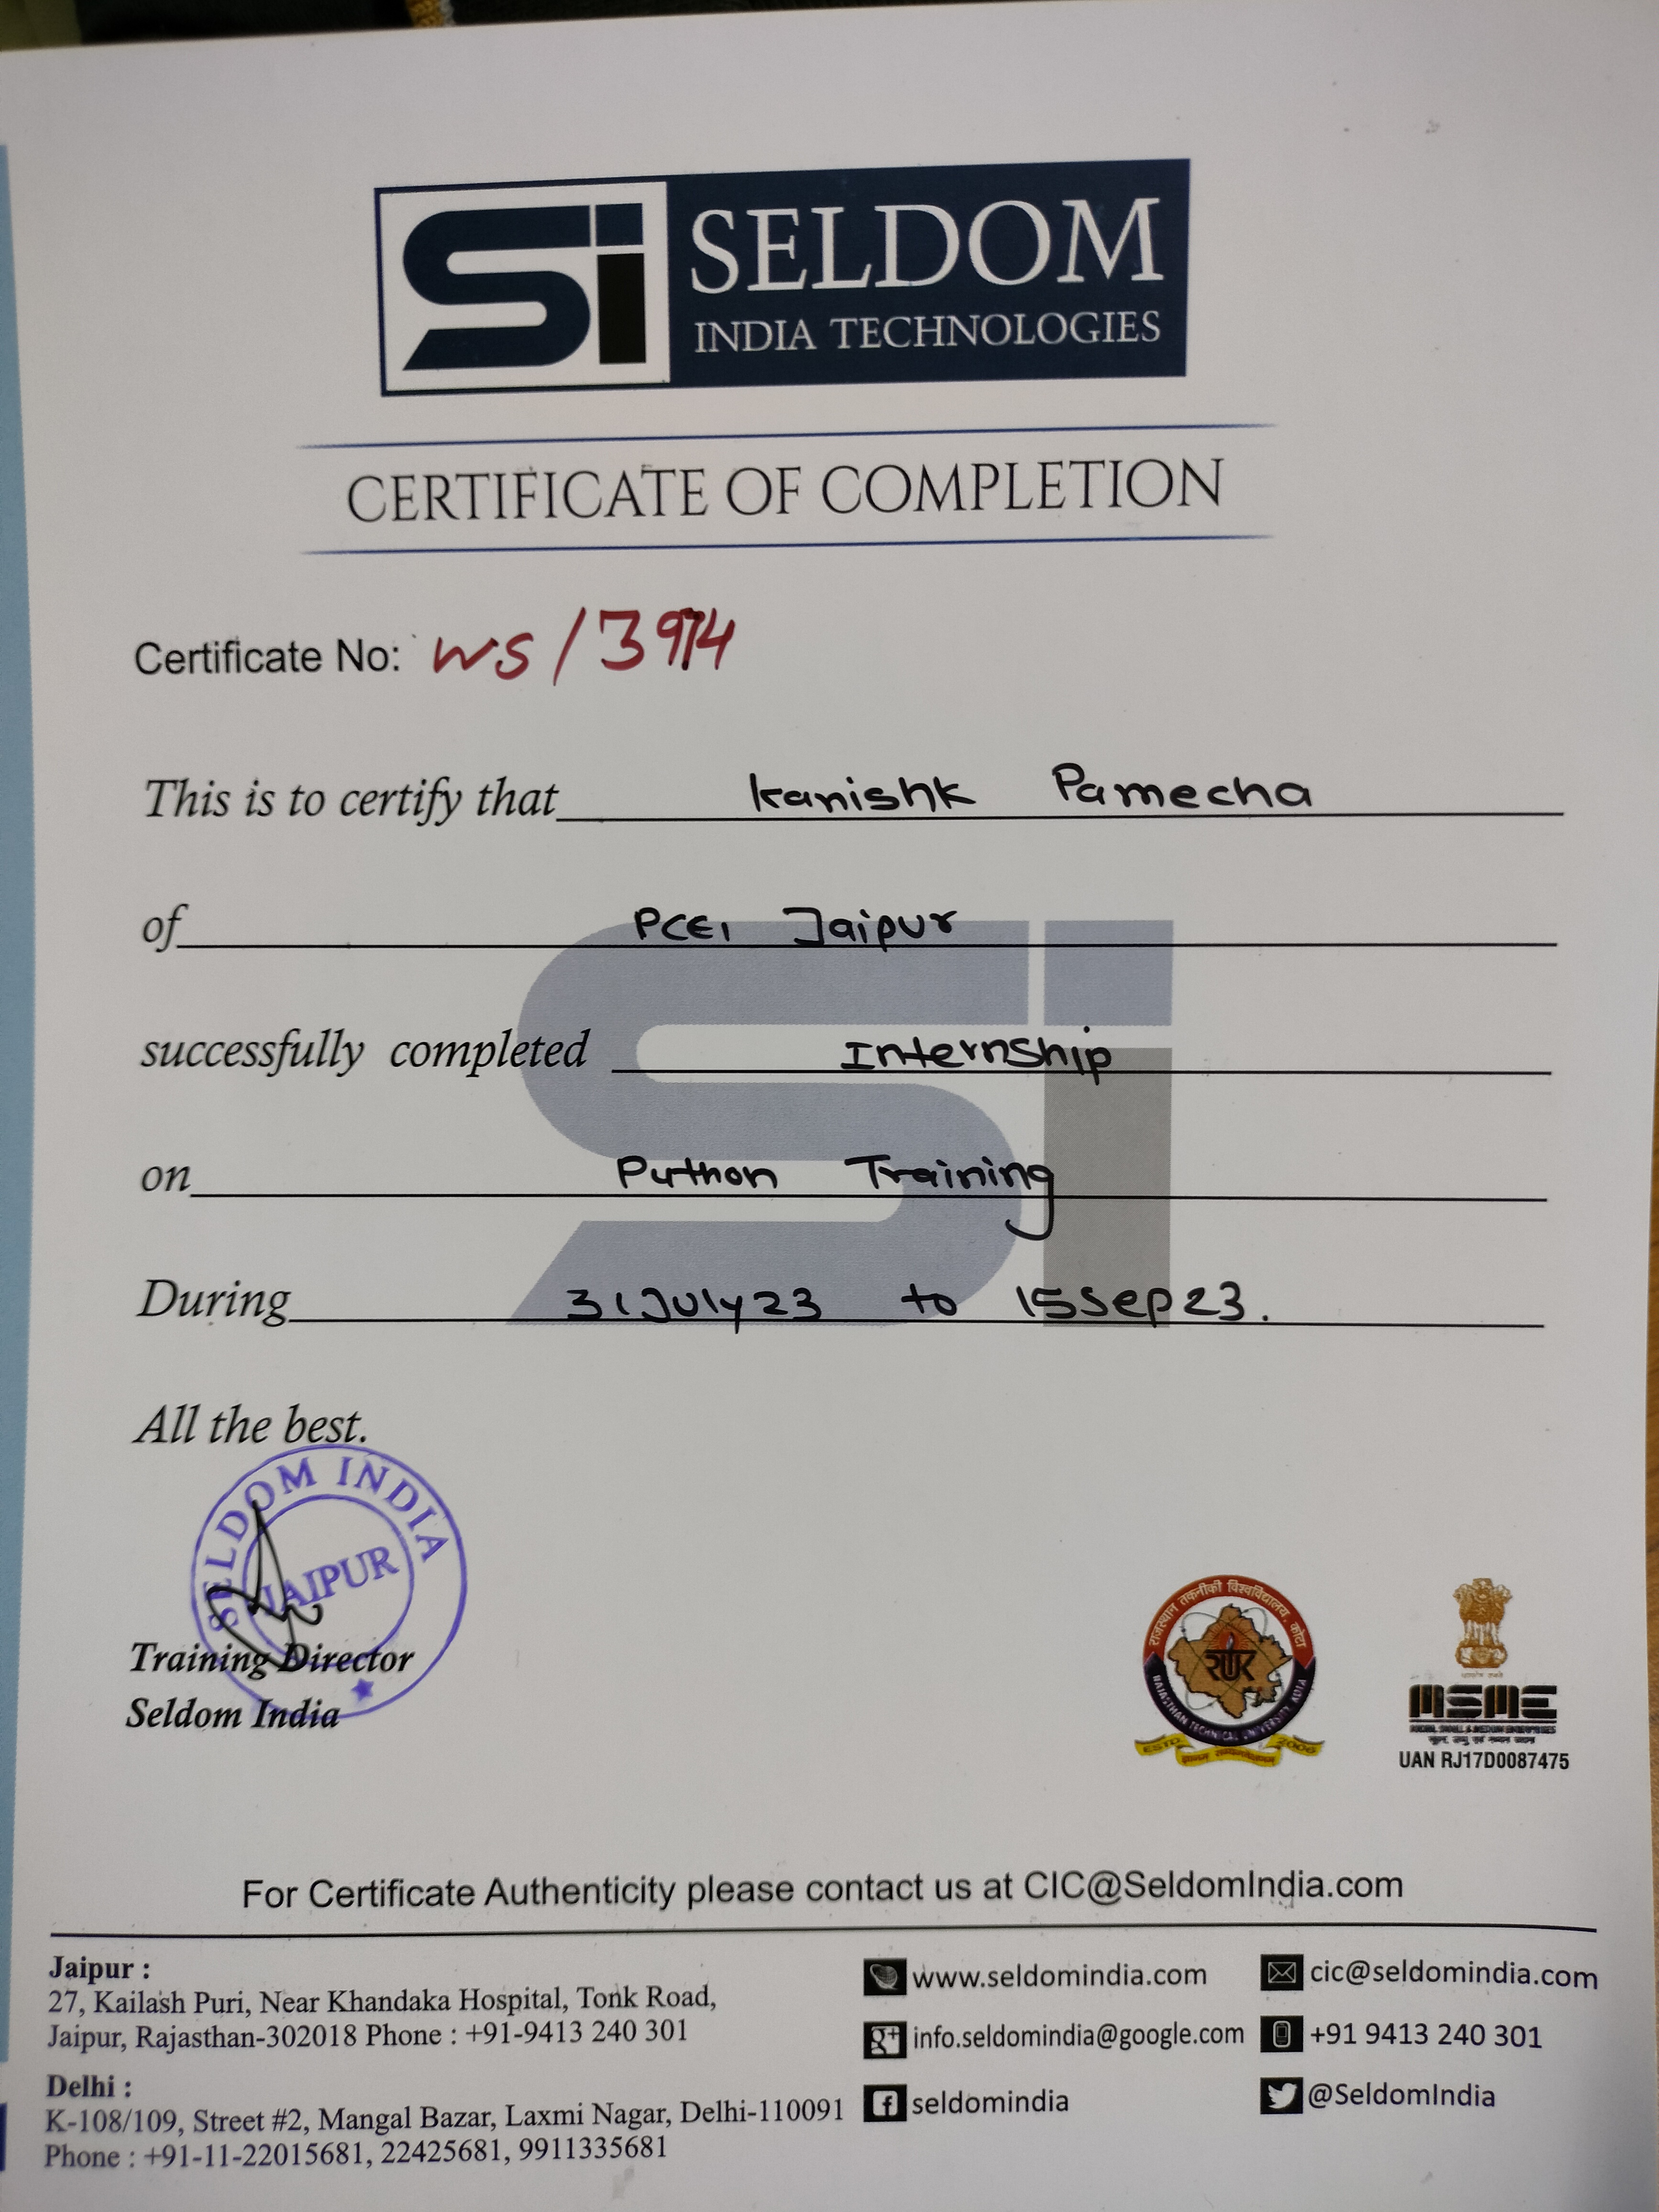 Si SELDOM
INDIA TECHNOLOGIES
CERTIFICATE OF COMPLETION
Certificate No: WS/3974
This is to certify that Kanishk Pamecha
of PCEI Jaipur
successfully completed Internship
on Python Training
During 31July23 to 15Sep23.
All the best.
SELDOM INDIA
JAIPUR
Training Director
Seldom India
राजस्थान तकनीकी विश्वविद्यालय, कोटा
RAJASTHAN TECHNICAL UNIVERSITY, KOTA
ESTD. 2006
MSME
MICRO, SMALL & MEDIUM ENTERPRISES
UAN RJ17D0087475
For Certificate Authenticity please contact us at CIC@SeldomIndia.com
Jaipur :
27, Kailash Puri, Near Khandaka Hospital, Tonk Road,
Jaipur, Rajasthan-302018 Phone : +91-9413 240 301
Delhi :
K-108/109, Street #2, Mangal Bazar, Laxmi Nagar, Delhi-110091
Phone : +91-11-22015681, 22425681, 9911335681
www.seldomindia.com
cic@seldomindia.com
g+ info.seldomindia@google.com
+91 9413 240 301
f seldomindia
@SeldomIndia